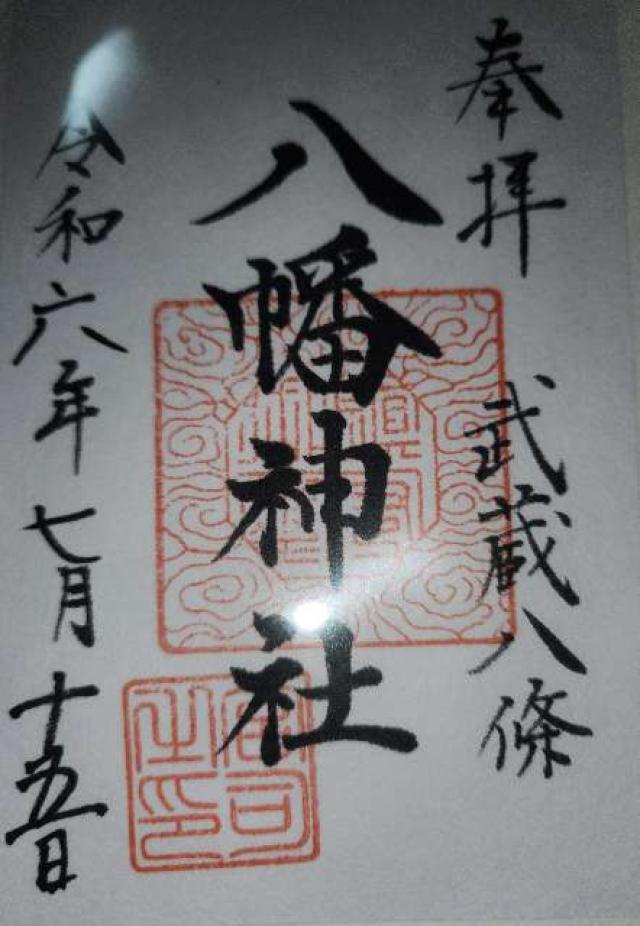 奉拝
武蔵八條
八幡神社
宮司之印
令和六年七月十五日